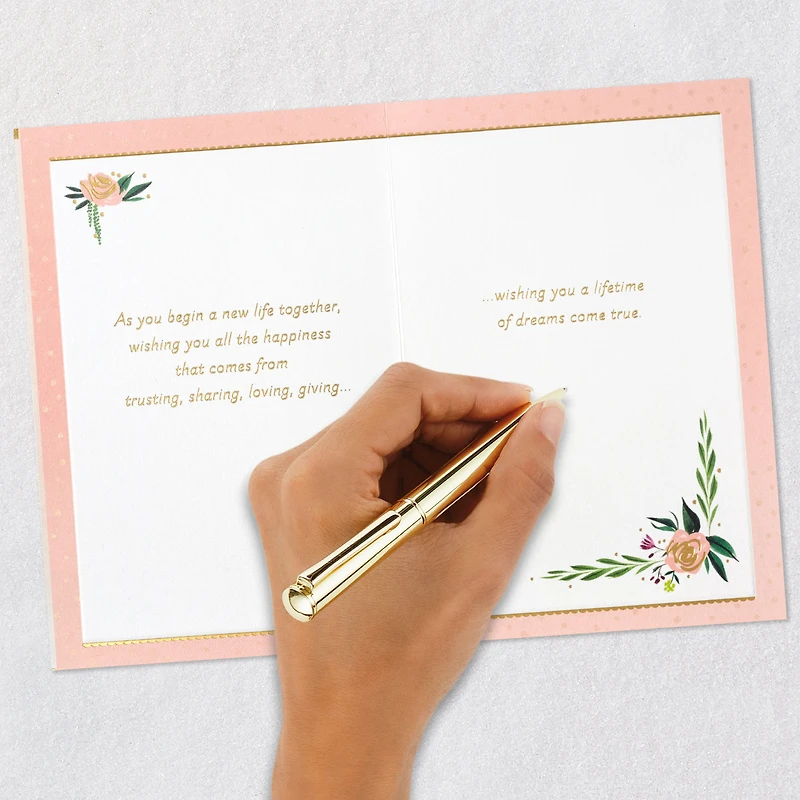 As you begin a new life together,
wishing you all the happiness
that comes from
trusting, sharing, loving, giving...
...wishing you a lifetime
of dreams come true.